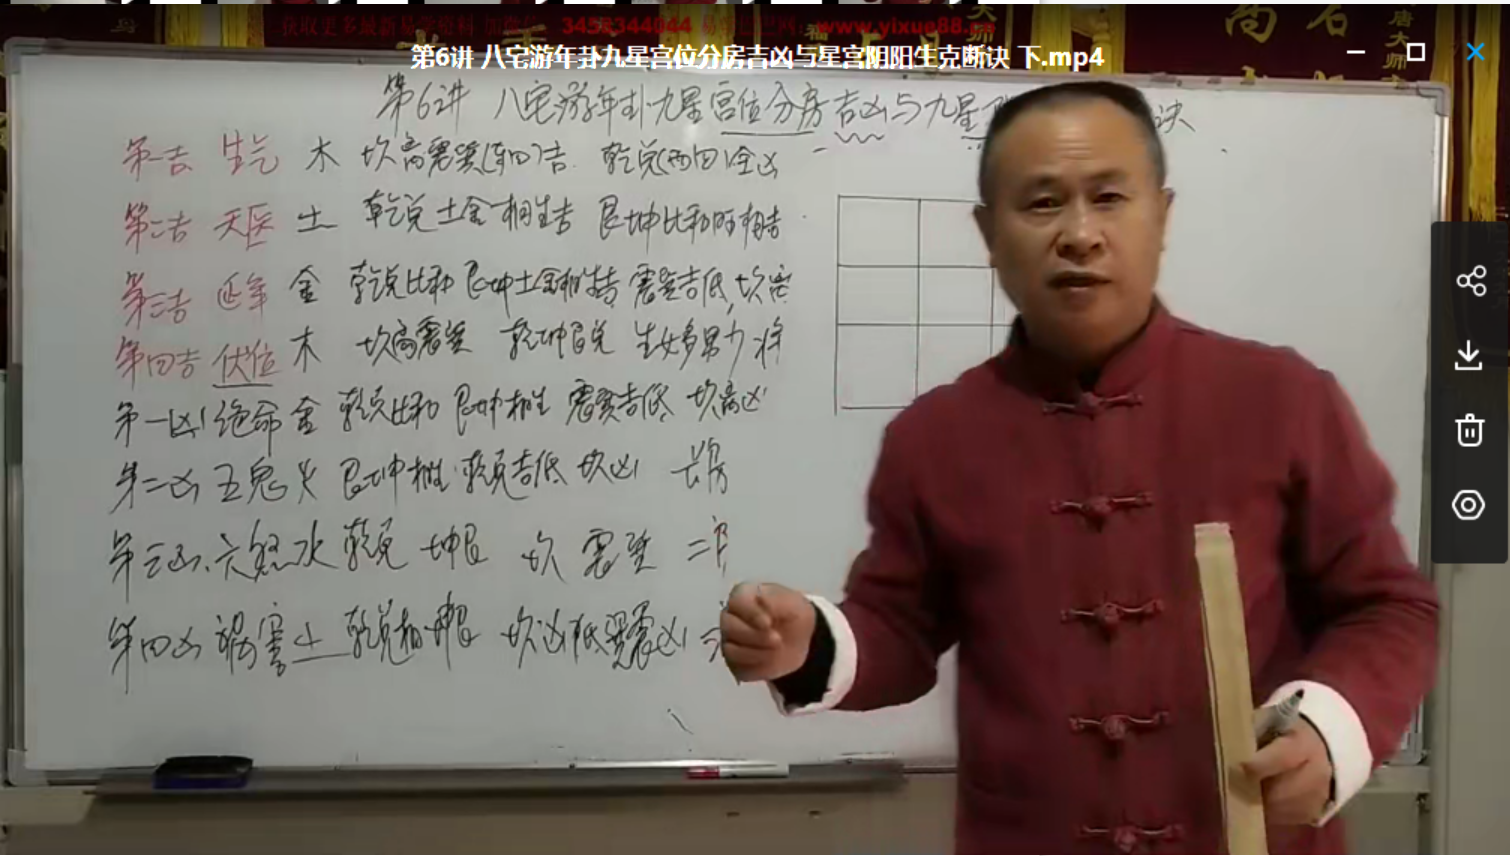 获取更多最新易学资料 加微信 3458344044 易学巴巴网: www.yixue88.cn
唐大师
第6讲 八宅游年卦九星宫位分房吉凶与星宫阴阳生克断诀 下.mp4
第6讲 八宅游年卦九星宫位分房吉凶与九星 诀
第一吉 生气 木 坎离震巽(东四)吉 乾兑(西四)全凶
第二吉 天医 土 乾兑土金相生吉 艮坤比和
第三吉 延年 金 乾兑比和 艮坤土金相生吉 震巽吉低,坎离
第四吉 伏位 木 坎离震巽 乾坤艮兑 生女多男少 将
第一凶 绝命 金 乾兑比和 艮坤相生 震巽吉低 坎离凶
第二凶 五鬼火 艮坤相生 乾兑吉低 坎凶 长房
第三凶 六煞水 乾兑 坤艮 坎 震巽 二
第四凶 祸害土 乾兑相 坤艮 坎凶低 巽震凶